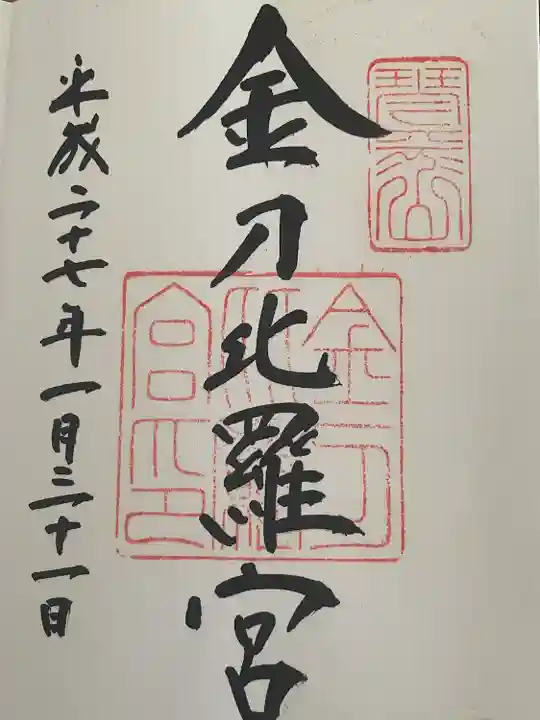 金刀比羅宮
平成二十七年一月三十一日
金刀比羅宮印